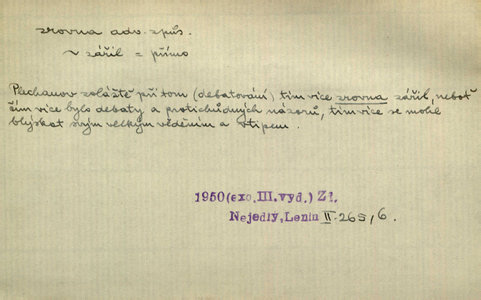 zrovna adv. způs.
~ zářil = přímo
Plechanov zvláště při tom (debatování) tím více zrovna zářil, neboť
čím více bylo debaty a protichůdných názorů, tím více se mohl
blýskat svým velkým věděním a vtipem.
1950 (exc. III. vyd.) Zt.
Nejedlý, Lenin II. 265, 6.